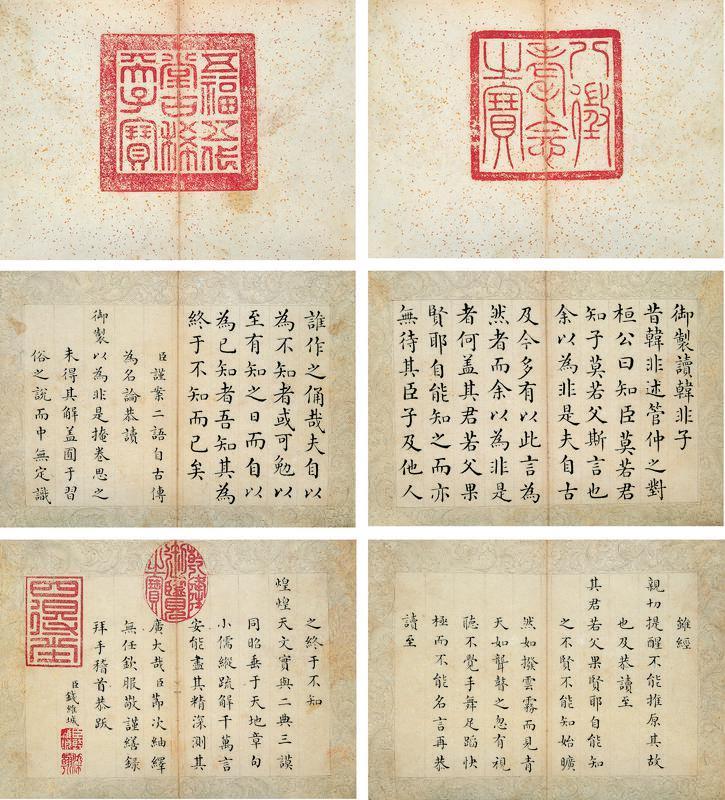 八徵
耄念
之寶
五福五代
堂古稀
天子寶
御製讀韓非子
昔韓非述管仲之對
桓公曰知臣莫若君
知子莫若父斯言也
余以為非是夫自古
及今多有以此言為
然者而余以為非是
者何盖其君若父果
賢耶自能知之而亦
無待其臣子及他人
誰作之俑哉夫自以
為不知者或可勉以
至有知之日而自以
為已知者吾知其為
終于不知而已矣
臣謹案二語自古傳
為名論恭讀
御製以為非是掩卷思之
未得其解盖囿于習
俗之說而中無定識
雖經
親切提醒不能推原其故
也及恭讀至
其君若父果賢耶自能知
之不賢不能知始曠
然如撥雲霧而見青
天如聾瞽之忽有視
聽不覺手舞足蹈快
極而不能名言再恭
讀至
之終于不知
煌煌天文實與二典三謨
同昭垂于天地章句
小儒縱疏解千萬言
安能盡其精深測其
廣大哉臣節次紬繹
無任欽服敬謹繕錄
拜手稽首恭跋
臣錢維城
乾隆
御覽
之寶